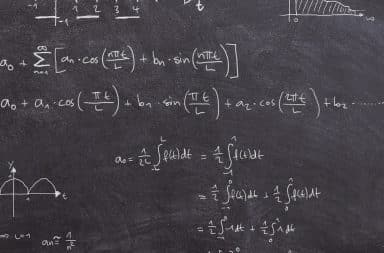 -1 1 2 3 4 t
-1 ∞
a₀ + ∑ₙ₌₁^∞ [aₙ · cos(nπt/L) + bₙ · sin(nπt/L)]
a₀ + a₁ · cos(πt/L) + b₁ · sin(πt/L) + a₂ · cos(2πt/L) + b₂ · ......
a₀ = 1/2L ∫₋L^L f(t)dt = 1/2 ∫₋₁^1 f(t)dt
y t
= 1/2 ∫₋₁^0 f(t)dt + 1/2 ∫₀^1 f(t)dt
= 1/2 ∫₋₁^0 1dt + 1/2 ∫₀^1 1dt
aₙ ≈ 1/n